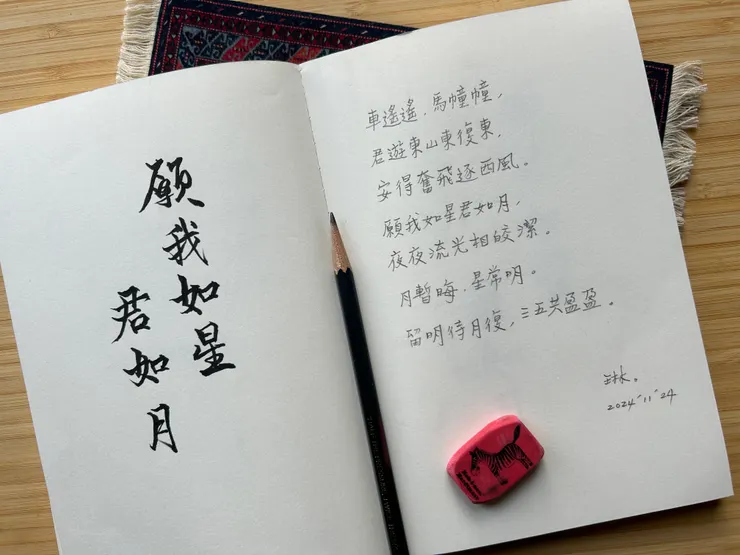 願我如星
君如月
車遙遙，馬幢幢，
君遊東山東復東，
安得奮飛逐西風。
願我如星君如月，
夜夜流光相皎潔。
月暫晦，星常明。
留明待月復，三五共盈盈。
2024'11'24